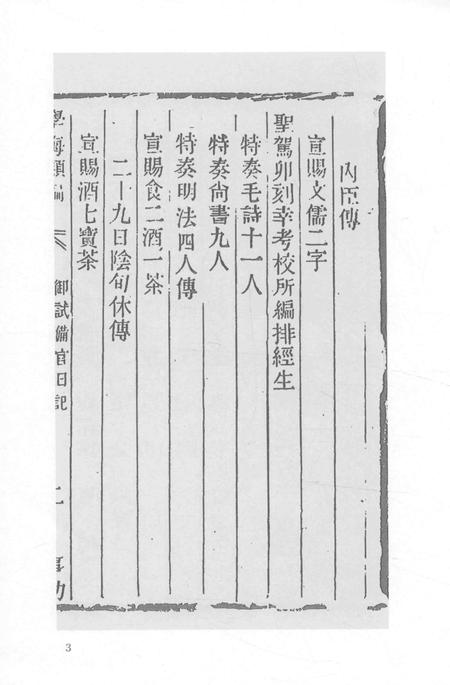 內臣傳
宣賜文儒二字
聖駕卯刻幸考校所編排經生
特奏毛詩十一人
特奏尚書九人
特奏明法四人傳
宣賜食二酒一茶
二十九日陰旬休傳
宣賜酒七寶茶
學海類編
御試備官日記
3